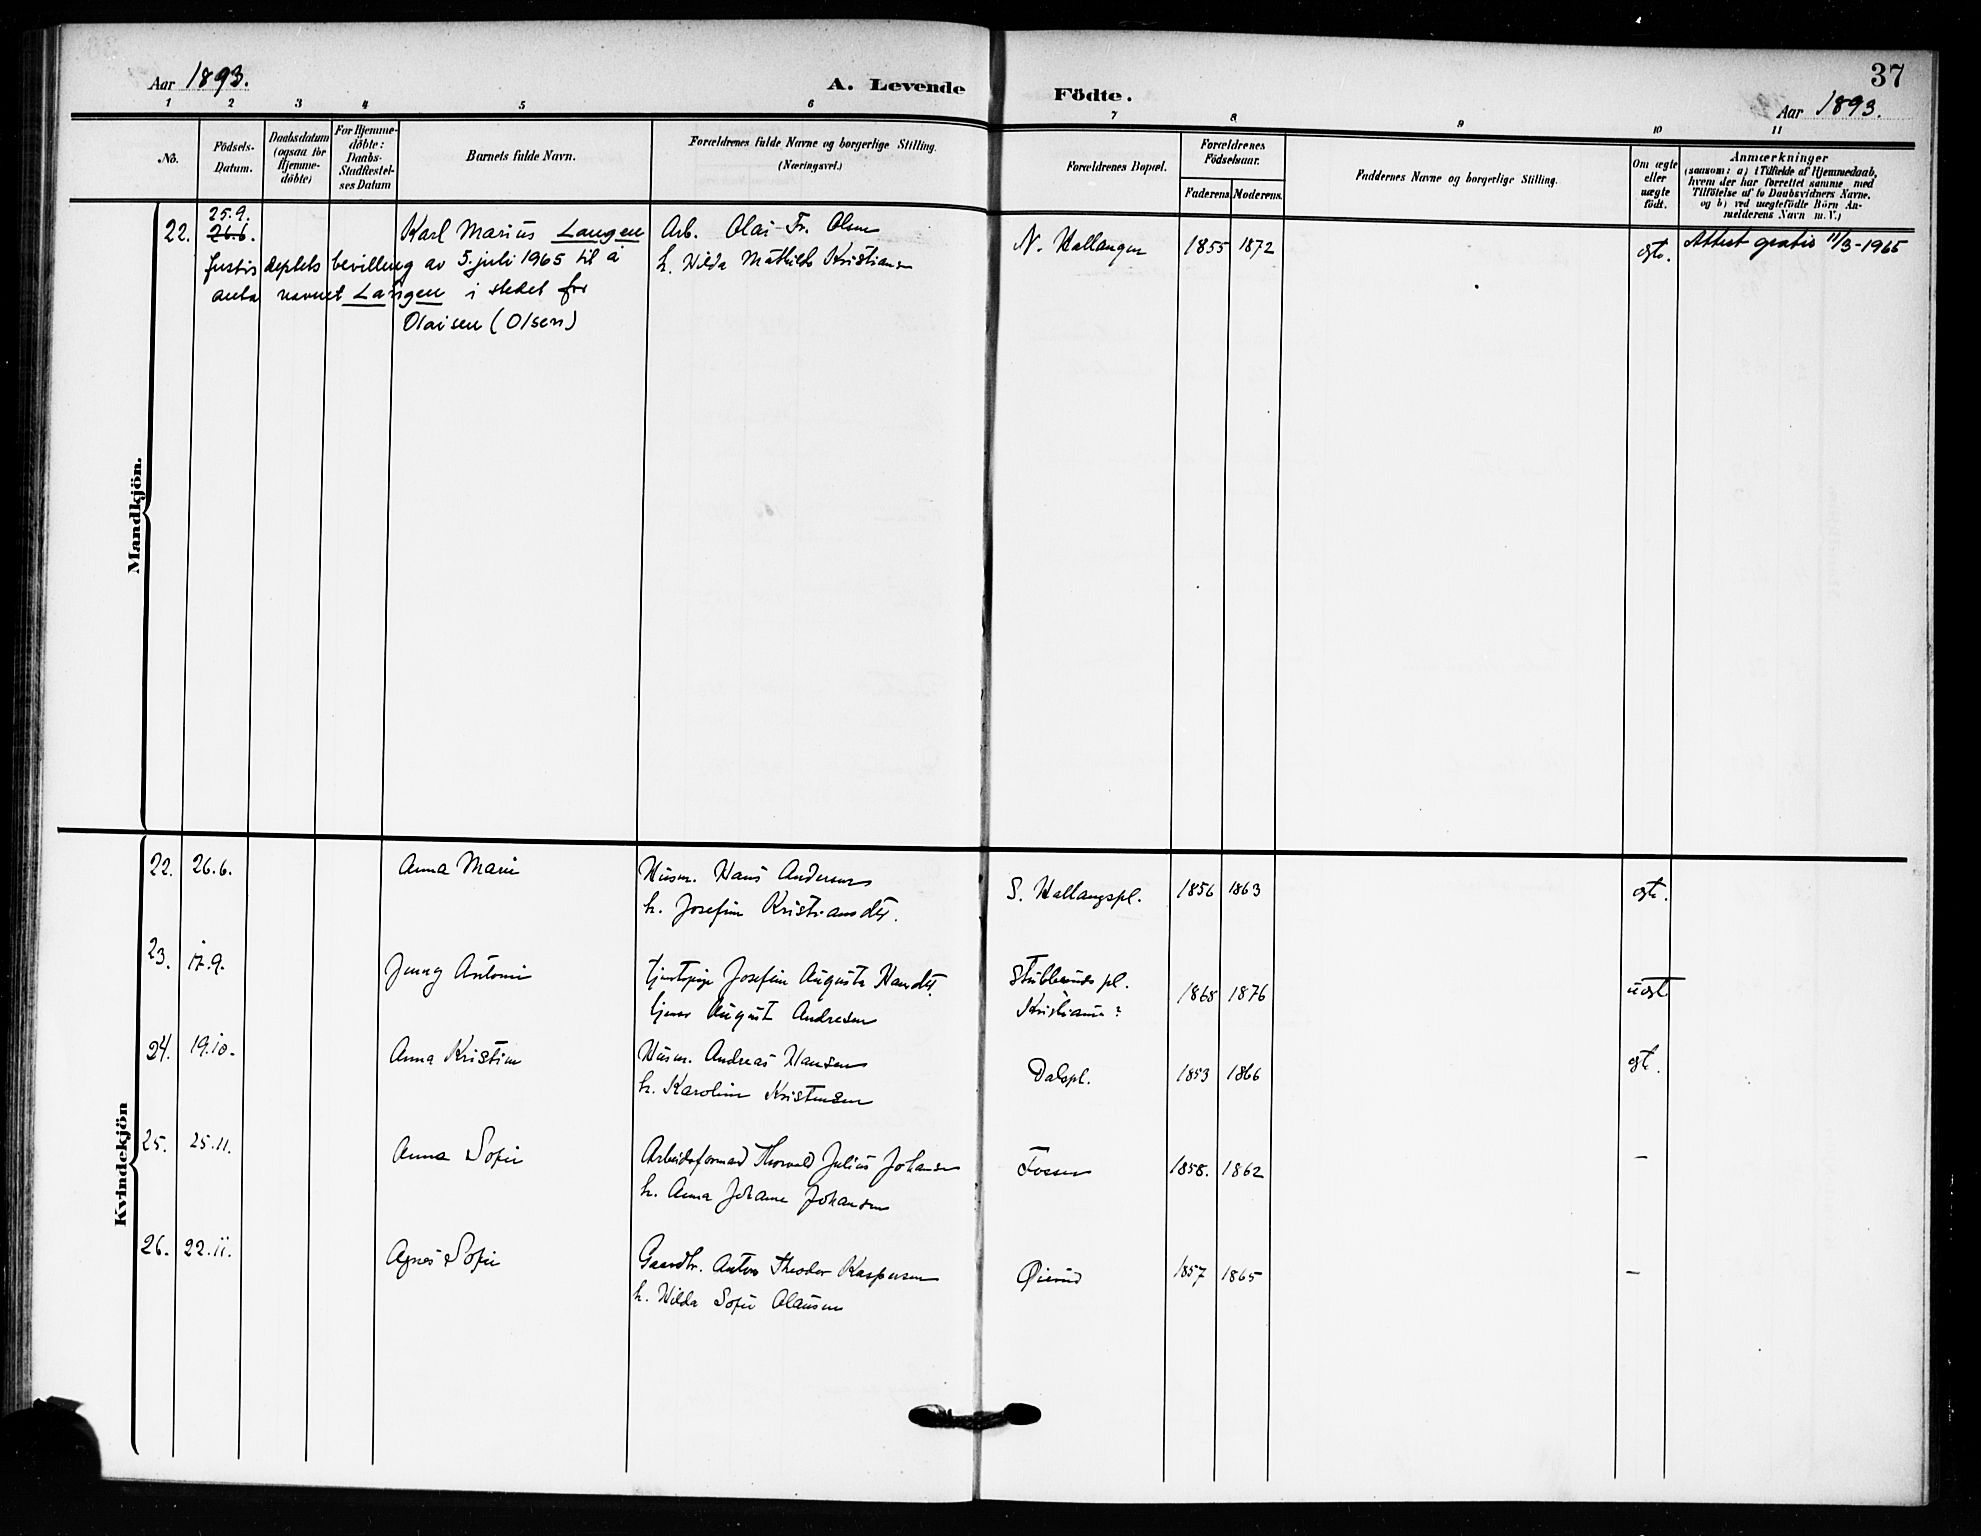 37
Aar 1893.
A. Levende Födte.
Aar 1893.
1 2 3 4 5 6 7 8 9 10 11
No.
Födsels-
Datum.
Daabsdatum
(ogsaa for
Hjemme-
döbte)
For Hjemme-
döbte:
Daabs-
Stadfæstel-
ses Datum
Barnets fulde Navn.
Forældrenes fulde Navne og borgerlige Stilling.
(Næringsvei.)
Forældrenes Bopæl.
Forældrenes
Födselsaar.
Faderens Moderens.
Faddernes Navne og borgerlige Stilling.
Om ægte
eller
uægte
født.
Anmærkninger
(saasom: a) i Tilfælde af Hjemmedaab,
hvem der har forrettet samme, med
Tilföielse af to Daabsvidners Navne.
og b) ved uægtefödte Börn An-
melderens Navn m. V.)
Mandkjön.
25.9.
22. 26.6. Karl Marius Langen Arb. Olai Fr. Olsen N. Hallangen 1855 1872 egte. Attest gratis 11/3-1965
h. Hilda Mathilde Kristiansen
Justisdeptets bevilling av 5. juli 1965 til å
anta navnet Langen i stedet for
Olaisen (Olsen)
Kvindekjön
22. 26.6. Anna Marie Husm. Hans Andersen S. Hallangspl. 1856 1863 egte.
h. Josefine Kristiansdtr.
23. 17.9. Jenny Antonie tjenstpige Josefine Augusta Hansdtr. Stubberuds pl. 1868 1876 uegte
tjener August Andresen Kristiania?
24. 19.10. Anna Kristine Husm. Andreas Hansen Dalspl. 1853 1866 egte.
h. Karoline Kristensen
25. 25.11. Anna Sofie Arbeidsformand Thorvald Julius Johansen Fossen 1858. 1862 —
h. Anna Johanne Johansen
26. 22.11. Agnes Sofie Gaardbr. Anton Theodor Kaspersen Øierud 1857 1865 —
h. Hilda Sofie Olausen